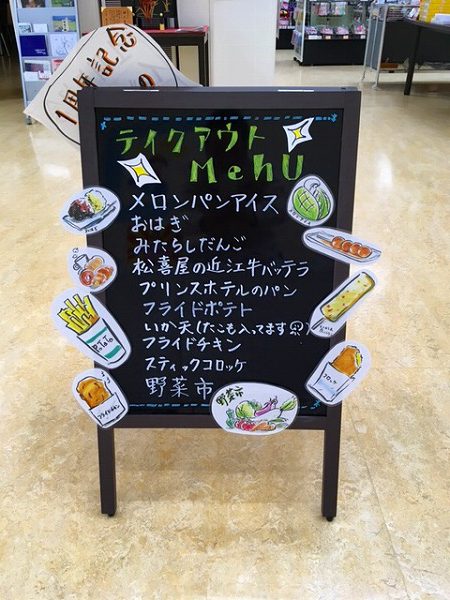 1周年記念
の
テイクアウト
MenU
メロンパンアイス
おはぎ
みたらしだんご
松喜屋の近江牛バッテラ
プリンスホテルのパン
フライドポテト
いか天(たこも入ってます)
フライドチキン
スティックコロッケ
野菜市
POTATO
フライドチキン
コロッケ
野菜市